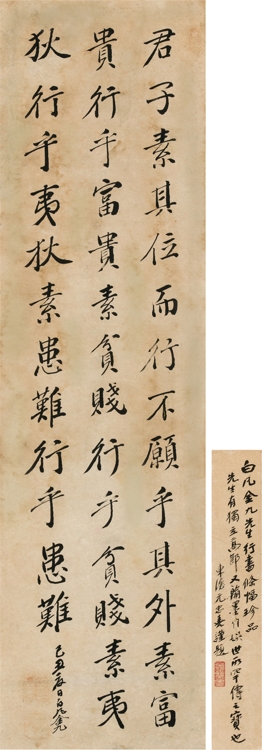 君子素其位而行不願乎其外素富
貴行乎富貴素貧賤行乎貧賤素夷
狄行乎夷狄素患難行乎患難
己丑 日白凡金九
白凡金九先生行書條幅珍品
先生有獨立 世 傳之寶也